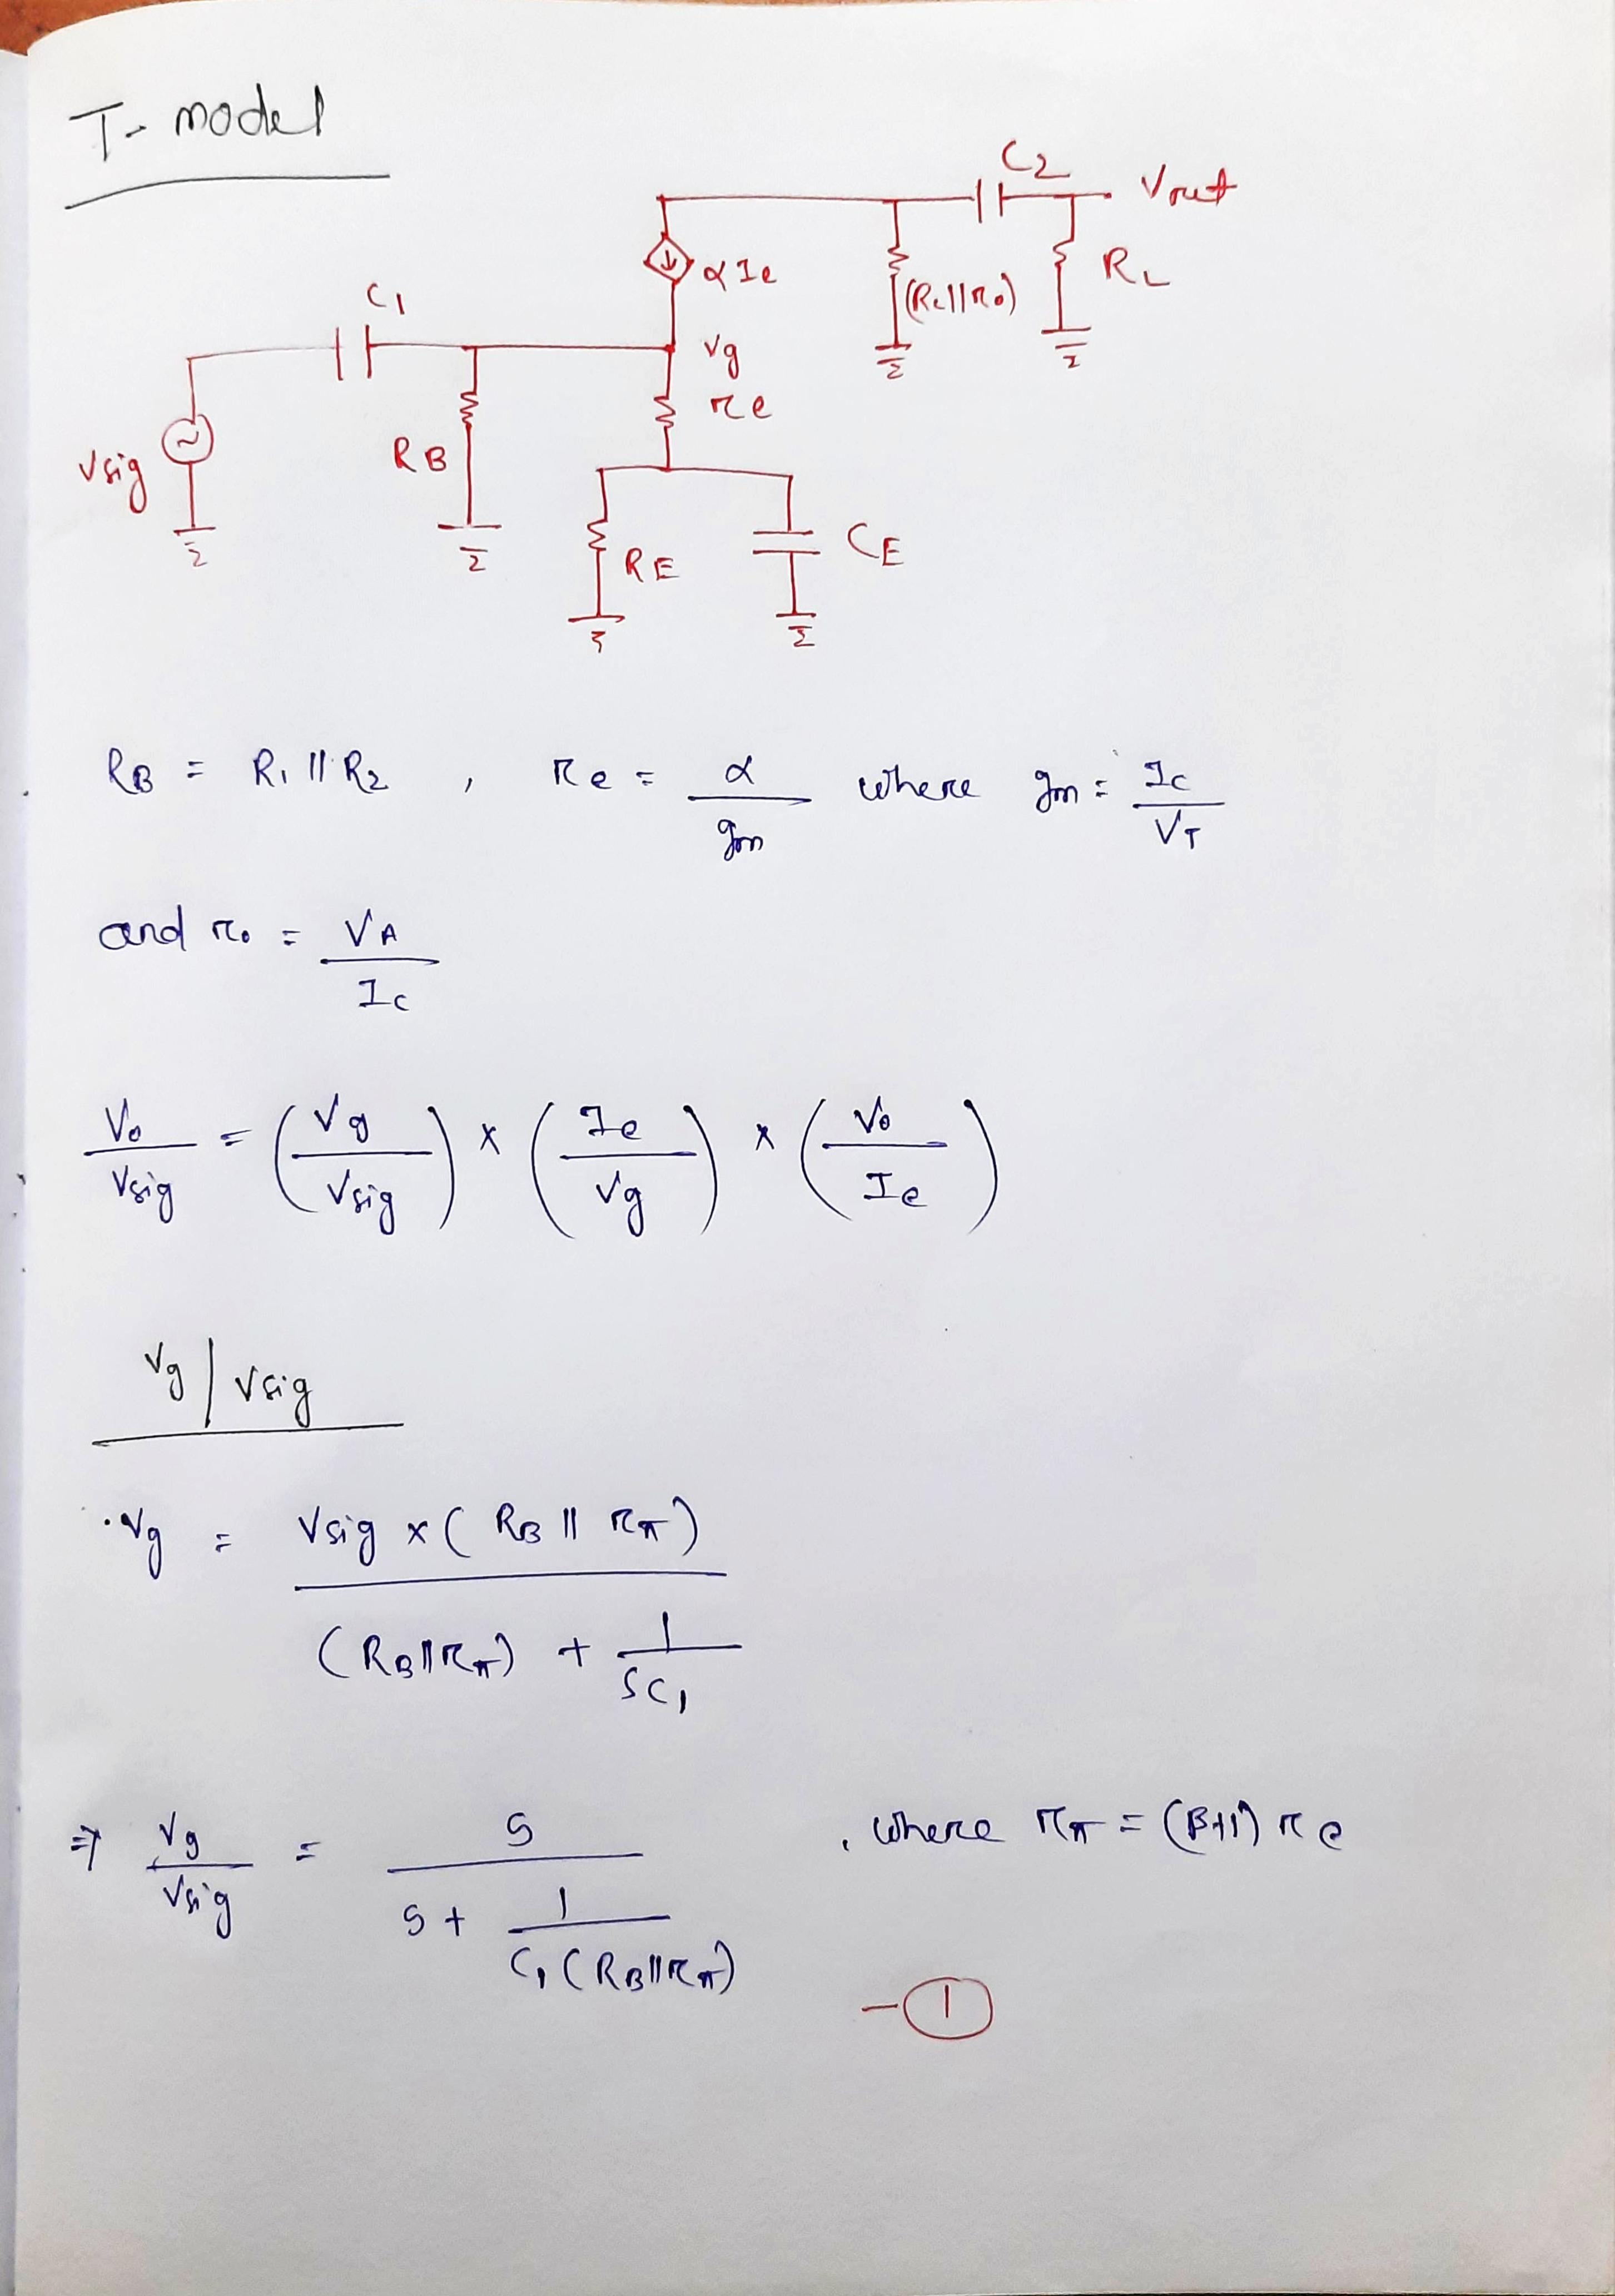 T- model
C2
Vout
αIe
(Rc||ro)
RL
C1
Vg
re
Vsig
RB
RE
CE
RB = R1 || R2 , re = α / gm where gm = Ic / VT
and ro = VA / Ic
Vo / Vsig = (Vg / Vsig) x (Ie / Vg) x (Vo / Ie)
Vg / Vsig
Vg = Vsig x (RB || rπ) / ((RB||rπ) + 1 / SC1)
⇒ Vg / Vsig = S / (S + 1 / (C1 (RB||rπ))) , where rπ = (β+1) re
- 1